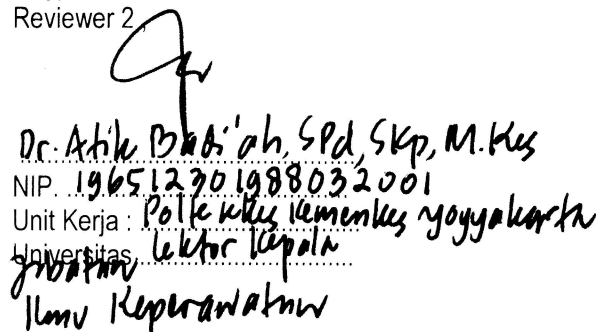 Reviewer 2
Dr. Atik Badi'ah, SPd, SKp, M.Kes
NIP. 196512301988032001
Unit Kerja : Poltekkes Kemenkes Yogyakarta
Universitas Lektor Kepala
Jabatan
Ilmu Keperawatan